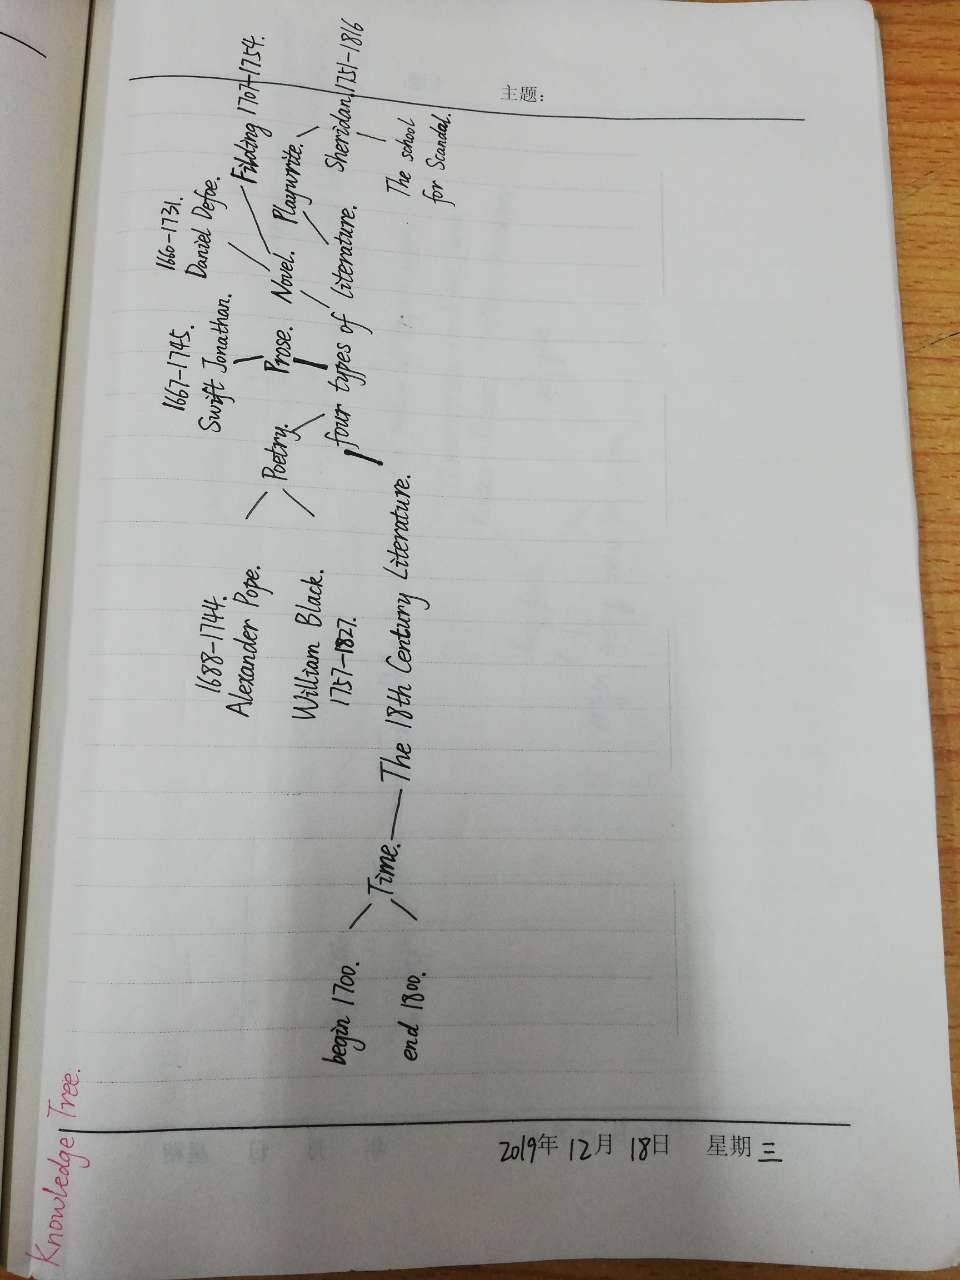 Knowledge Tree.
主题:
begin 1700.
end 1800.
Time.
The 18th Century Literature.
four types of Literature.
Poetry.
1688-1744.
Alexander Pope.
William Black.
1757-1827.
Prose.
1667-1745.
Swift Jonathan.
Novel.
1660-1731.
Daniel Defoe.
Filding 1707-1754.
Playwrite.
Sheridan.1751-1816
The school
for Scandal.
2019年12月18日 星期三